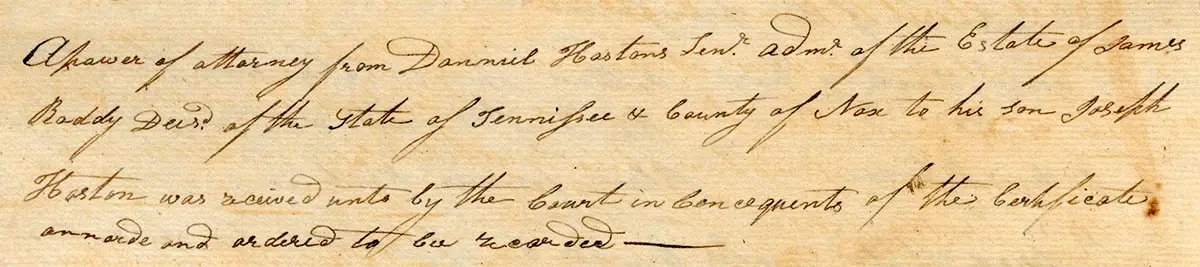 A pawer of attorney from Danniel Hastons Senr. admr. of the Estate of James
Roddy Decsd. of the State of Tennissee & County of Nox to his son Joseph
Haston was received unto by the Court in Concequents of the Certificate
and ordered to be recorded